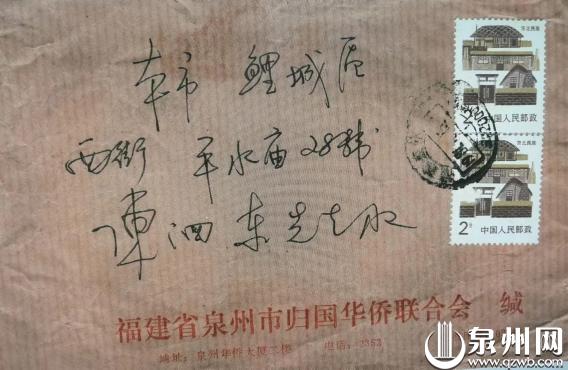 本市 鲤城区
西街 平水庙28號
陳泗东先生收
福建省泉州市归国华侨联合会 缄
地址：泉州华侨大厦二楼 电话：2352
东北民居
中国人民邮政
东北民居
2分
中国人民邮政
泉州网
www.qzwb.com